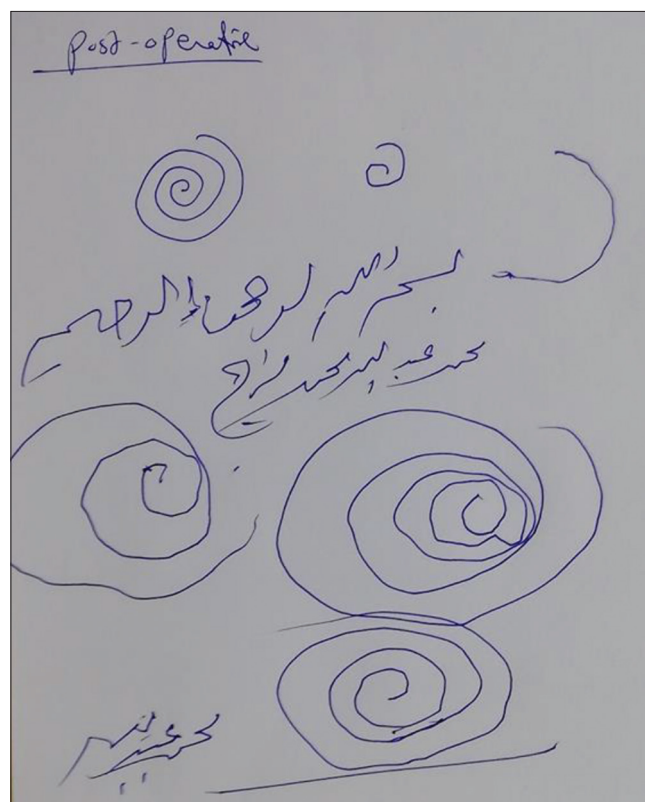 post-operative
بسم الله الرحمن الرحيم
محمد عبد الله محمد
محمد عبد الله